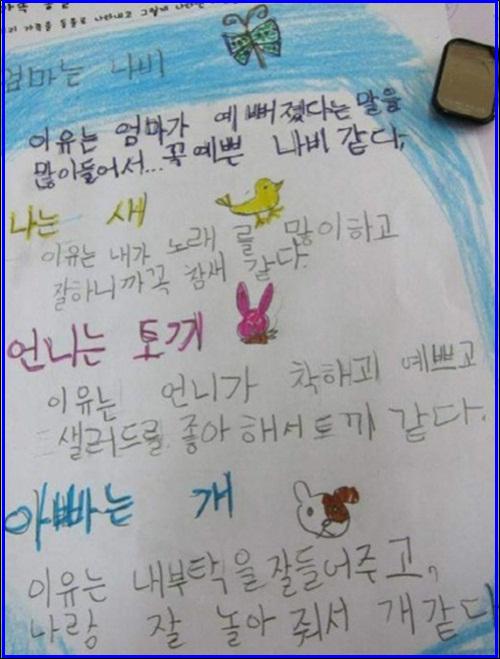 가족을 동물로 나타내고 그렇게
엄마는 나비
이유는 엄마가 예뻐졌다는 말을
많이들어서...꼭예쁜 나비 같다,
나는 새
이유는 내가 노래를 많이하고
잘하니까꼭 참새 같다.
언니는 토끼
이유는 언니가 착해괴 예쁘고
샐러드를 좋아해서토끼 같다.
아빠는 개
이유는 내부탁을잘들어주고,
나랑 잘 놀아 줘서 개같다